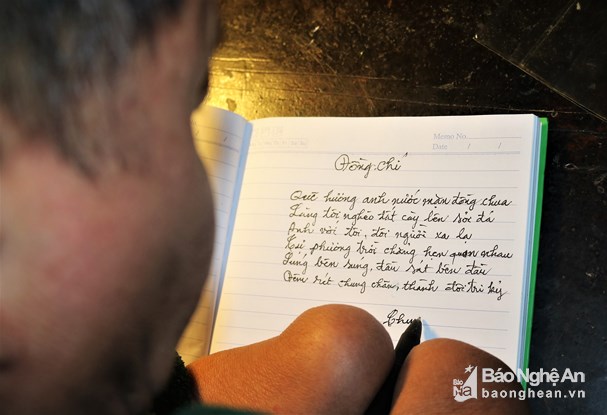 Memo No.
Date / /
Đồng chí
Quê hương anh nước mặn đồng chua
Làng tôi nghèo đất cày lên sỏi đá
Anh với tôi, đôi người xa lạ
Từ phương trời chẳng hẹn quen nhau
Súng bên súng, đầu sát bên đầu
Đêm rét chung chăn, thành đôi tri kỷ
Chun
Báo NA
Báo Nghệ An
baonghean.vn